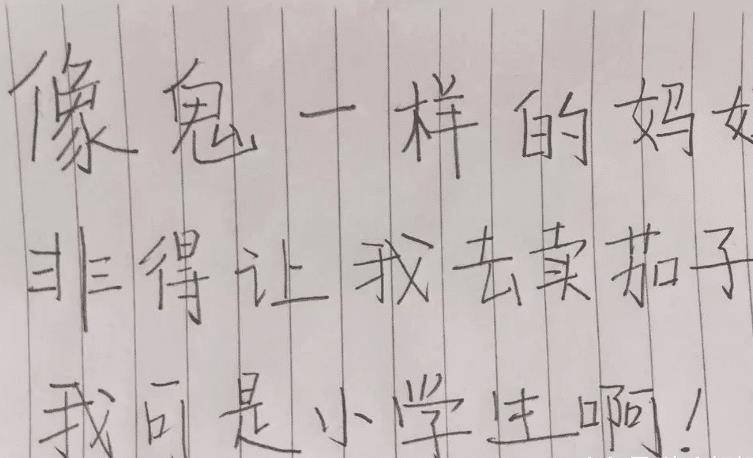 像鬼一样的妈妈
非得让我去卖茄子
我可是小学生啊!